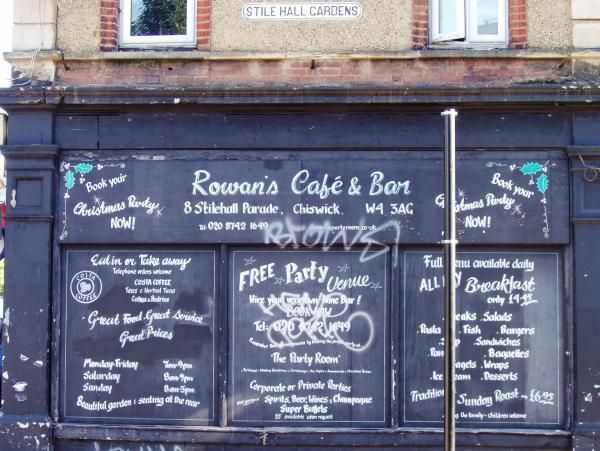 STILE HALL GARDENS
Book your
Christmas Party
NOW!
Rowan's Café & Bar
8 Stilehall Parade, Chiswick, W4 3AG
Tel: 020 8742 1649
Book your
Christmas Party
NOW!
Eat in or Take away
Telephone orders welcome
COSTA COFFEE
Teas & Herbal Teas
Cakes & Pastries
COSTA
COFFEE
Great Food, Great Service
Great Prices
Monday-Friday 7am-9pm
Saturday 8am-9pm
Sunday 8am-5pm
Beautiful garden & seating at the rear
FREE Party
Venue
Hire your very own Wine Bar!
BOOK NOW
Tel: 020 8742 1649
'The Party Room'
Corporate or Private Parties
Spirits, Beer, Wines & Champagne
Super Buffets
available upon request
Full menu available daily
ALL DAY Breakfast
only £4.95
Salads
Pasta Fish Burgers
Sandwiches
Baguettes
Wraps
Desserts
Sunday Roast £6.95
the family - children welcome